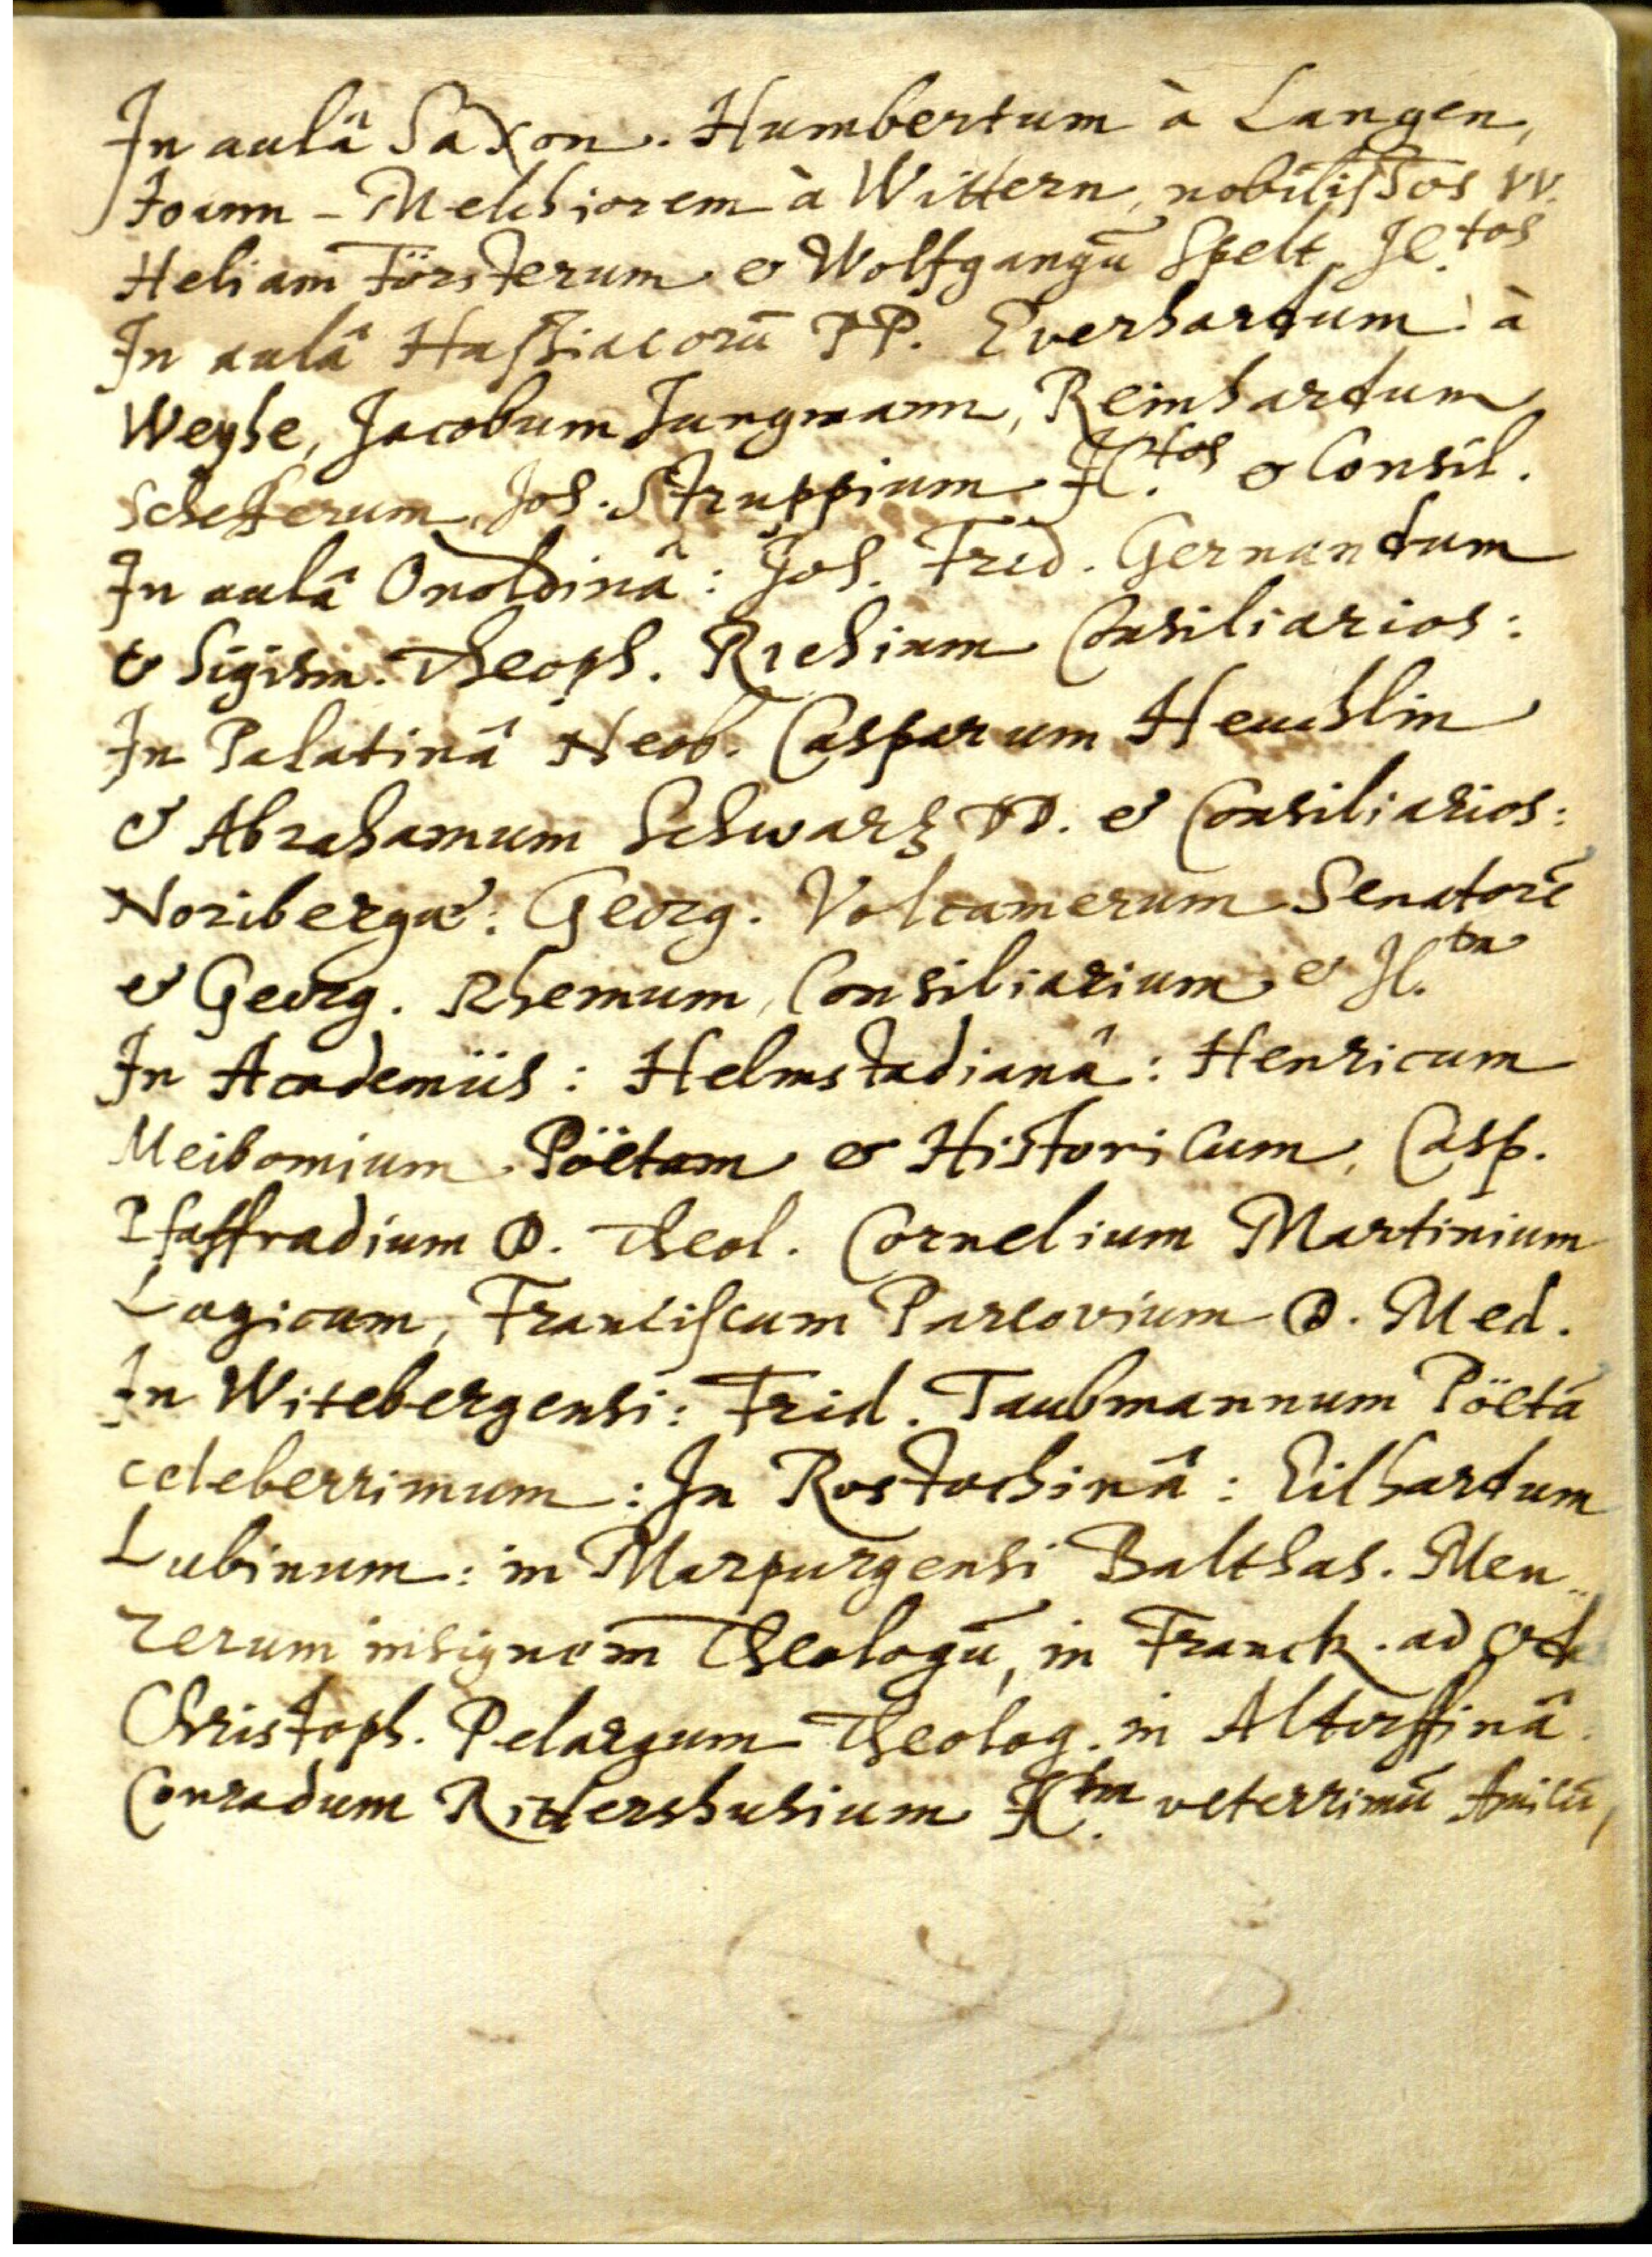 In aulâ Saxon. Humbertum à Langen,
Joann-Melchiorem à Wittern, nobilissos VV.
Heliam Försterum & Wolfgangū Spelt JC.tos
In aulâ Hassiacorū PP. Everhardum à
Weyhe, Jacobum Jungmann, Reinhardum
Schefferum, Joh. Struppium JC.tos & Consil.
In aulâ Onoldinâ: Joh. Frid. Gernandum
& Sigism. Theoph. Richium Consiliarios:
In Palatinâ Neob. Casparum Heuchlin
& Abrahamum Schwarz DD. & Consiliarios:
Noribergæ: Georg. Volcamerum Senatorē
& Georg. Rhemum, Consiliarium & JC.tm
In Academiis: Helmstadianâ: Henricum
Meibomium Pöetam & Historicum, Casp.
Pfaffradium D. Theol. Cornelium Martinium
Logicum, Franciscum Parcovium D. Med.
In Witebergensi: Frid. Taubmannum Pöetā
celeberrimum: In Rostochinâ: Eilhardum
Lubinum: in Marpurgensi Balthas. Men-
zerum insignem Theologū, in Franck. ad Od.
Christoph. Pelargum Theolog. in Altorffinâ
Conradum Rittershusium JC.tm veterrimū Amicū,